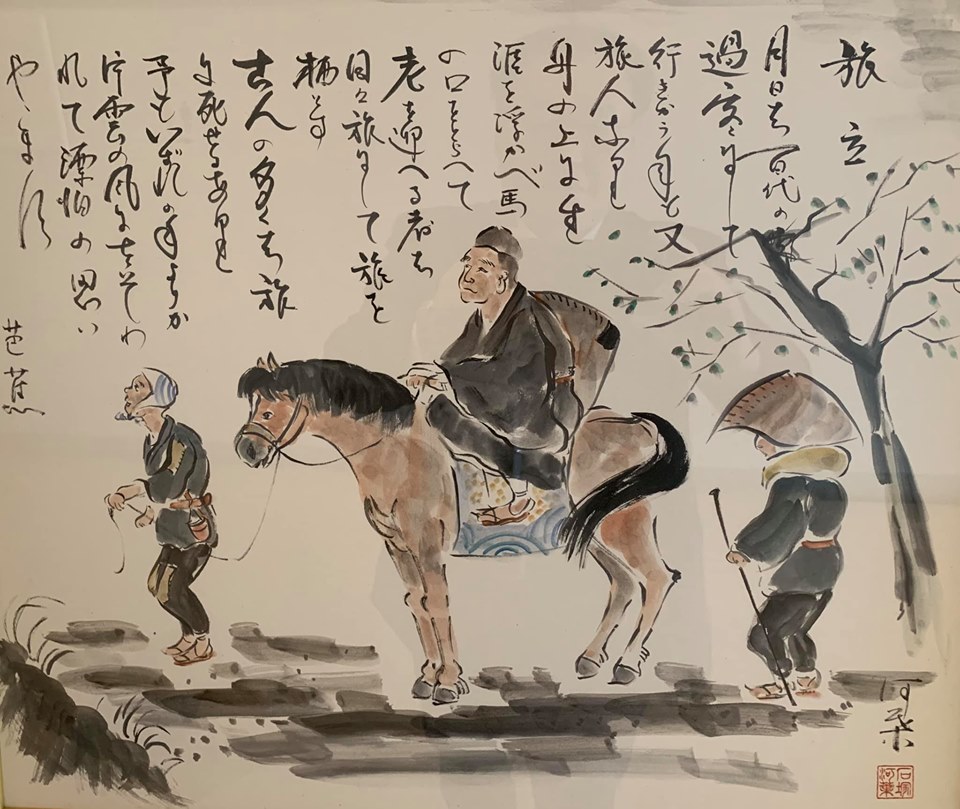 旅立
月日は百代の
過客にして
行きかう年も又
旅人なり
舟の上に生
涯を浮かべ馬
の口をとらへて
老を迎へる者は
日々旅にして旅を
栖とす
古人の多くも旅
に死せるあり
予もいづれの年よりか
片雲の風にさそわ
れて漂泊の思い
やまず
芭蕉
河葉
石塚
河葉